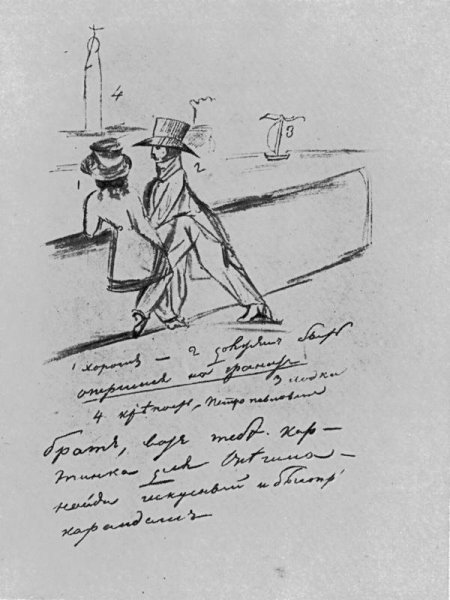 4
3
2
1
1 хорошъ — 2 долженъ быть
опершися на гранитъ
3 лодка
4 крѣпость, Петропавловская
братъ, вотъ тебѣ кар—
тинка для Онѣгина—
найди искусный и быстрый
карандашъ